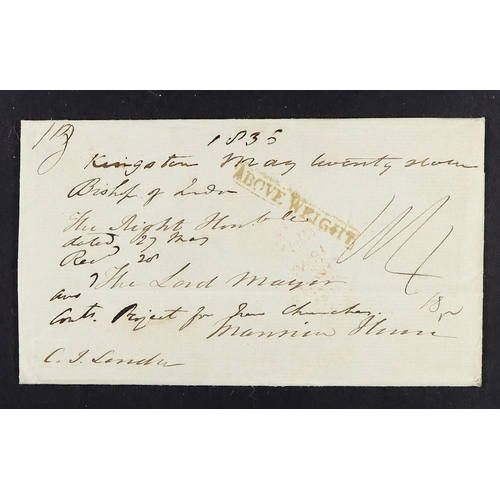 1835
Kingston May twenty seven
Bishop of
ABOVE WEIGHT
The Right Honble
dated 27 May
Recd 28
The Lord Mayor
Project for Churches.
Mansion House
C. J. London